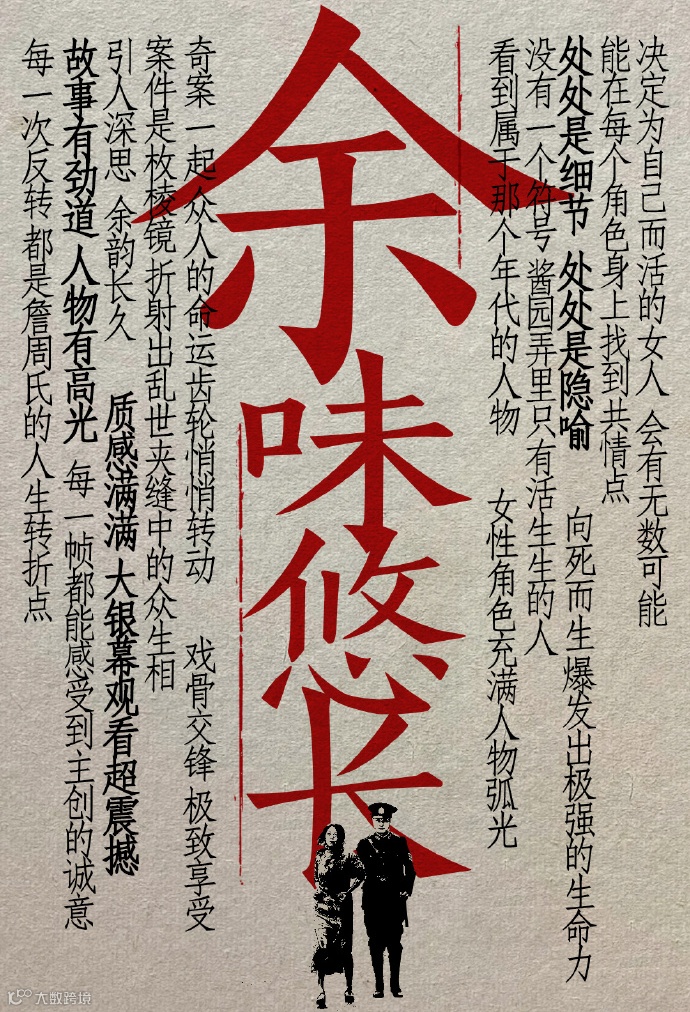 决定为自己而活的女人 会有无数可能
能在每个角色身上找到共情点
处处是细节 处处是隐喻 向死而生 爆发出极强的生命力
没有一个符号 酱园弄里只有活生生的人
看到属于那个年代的人物 女性角色充满人物弧光
余味悠长
奇案一起众人的命运齿轮悄悄转动 戏骨交锋 极致享受
案件是枚棱镜 折射出乱世夹缝中的众生相
引人深思 余韵长久 质感满满 大银幕观看超震撼
故事有劲道 人物有高光 每一帧都能感受到主创的诚意
每一次反转 都是詹周氏的人生转折点
大数跨境